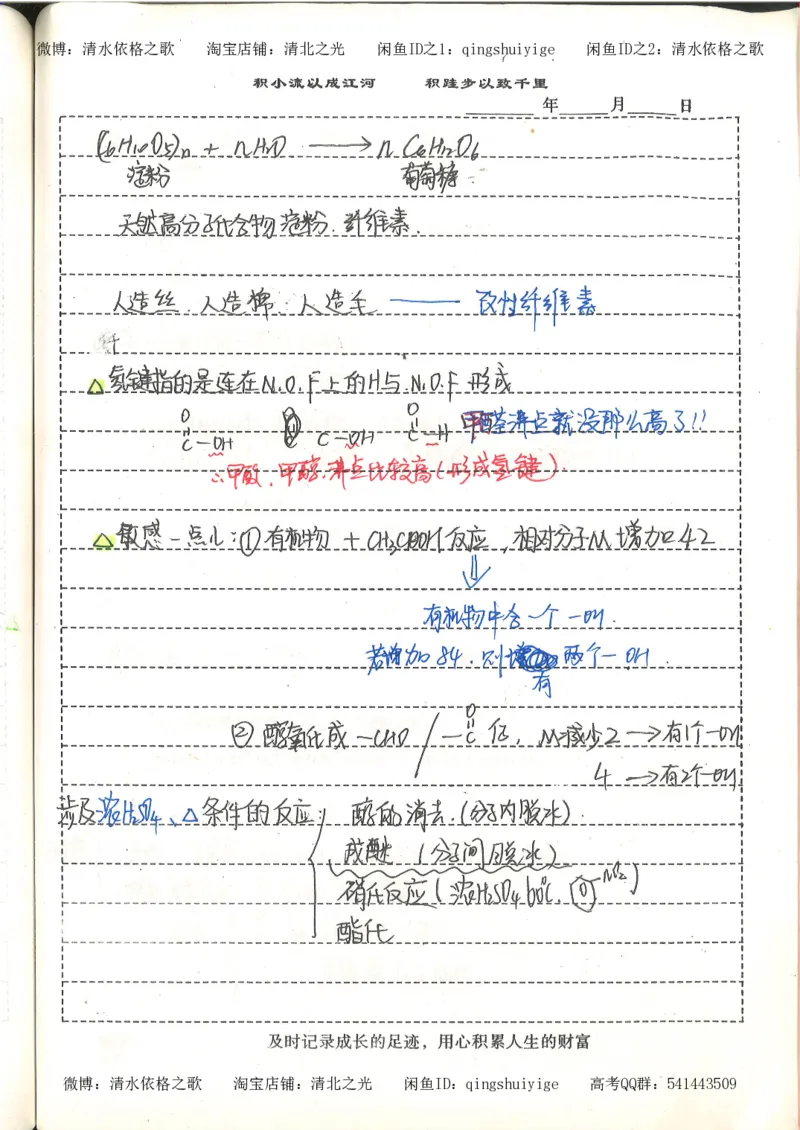 微博：清水依格之歌 淘宝店铺：清北之光 闲鱼ID之1：qingshuiyige 闲鱼ID之2：清水依格之歌
积小流以成江河 积跬步以致千里
年 月 日
(C6H10O5)n + nH2O ⟶ n C6H12O6
淀粉 葡萄糖
天然高分子化合物 淀粉．纤维素．
人造丝．人造棉．人造毛 —— 改性纤维素
纤
△ 氢键指的是连在N.O.F上的H与.N.O.F 形成
O O
C—OH C—OH C—H 甲醛沸点就没那么高了!!
∴甲酸．甲醇．沸点比较高(形成氢键).
△ 敏感一点儿：①有机物 + CH3COOH反应，相对分子M增加42
⇓
有机物中含一个 —OH.
若增加84．则有两个—OH
② 醇氧化成 —CHO / —C 亿，M减少2 → 有1个—OH
O
4 → 有2个—OH
涉及浓H2SO4、△条件的反应： 醇的消去．(分子内脱水)
成醚 (分子间脱水)
硝化反应 (浓H2SO4 60℃． NO2)
酯化
及时记录成长的足迹，用心积累人生的财富
微博：清水依格之歌 淘宝店铺：清北之光 闲鱼ID：qingshuiyige 高考QQ群：541443509